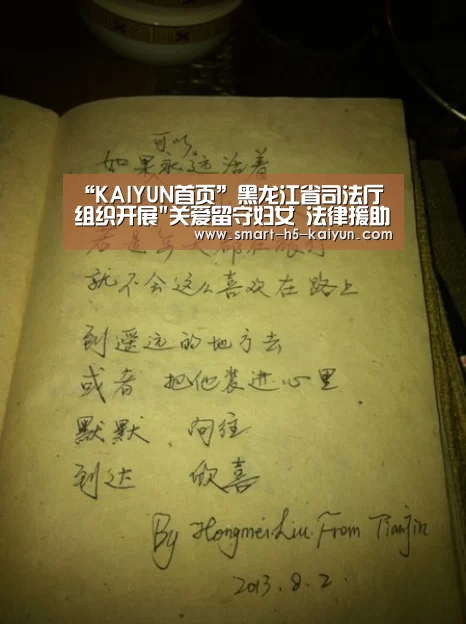 如果可以永远活着
“KAIYUN首页”黑龙江省司法厅
组织开展"关爱留守妇女 法律援助
www.smart-h5-kaiyun.com
就不会这么喜欢在路上
到遥远的地方去
或者 把他装进心里
默默 向往
到达 欣喜
By Hongmei Liu From Tianjin
2013.8.2